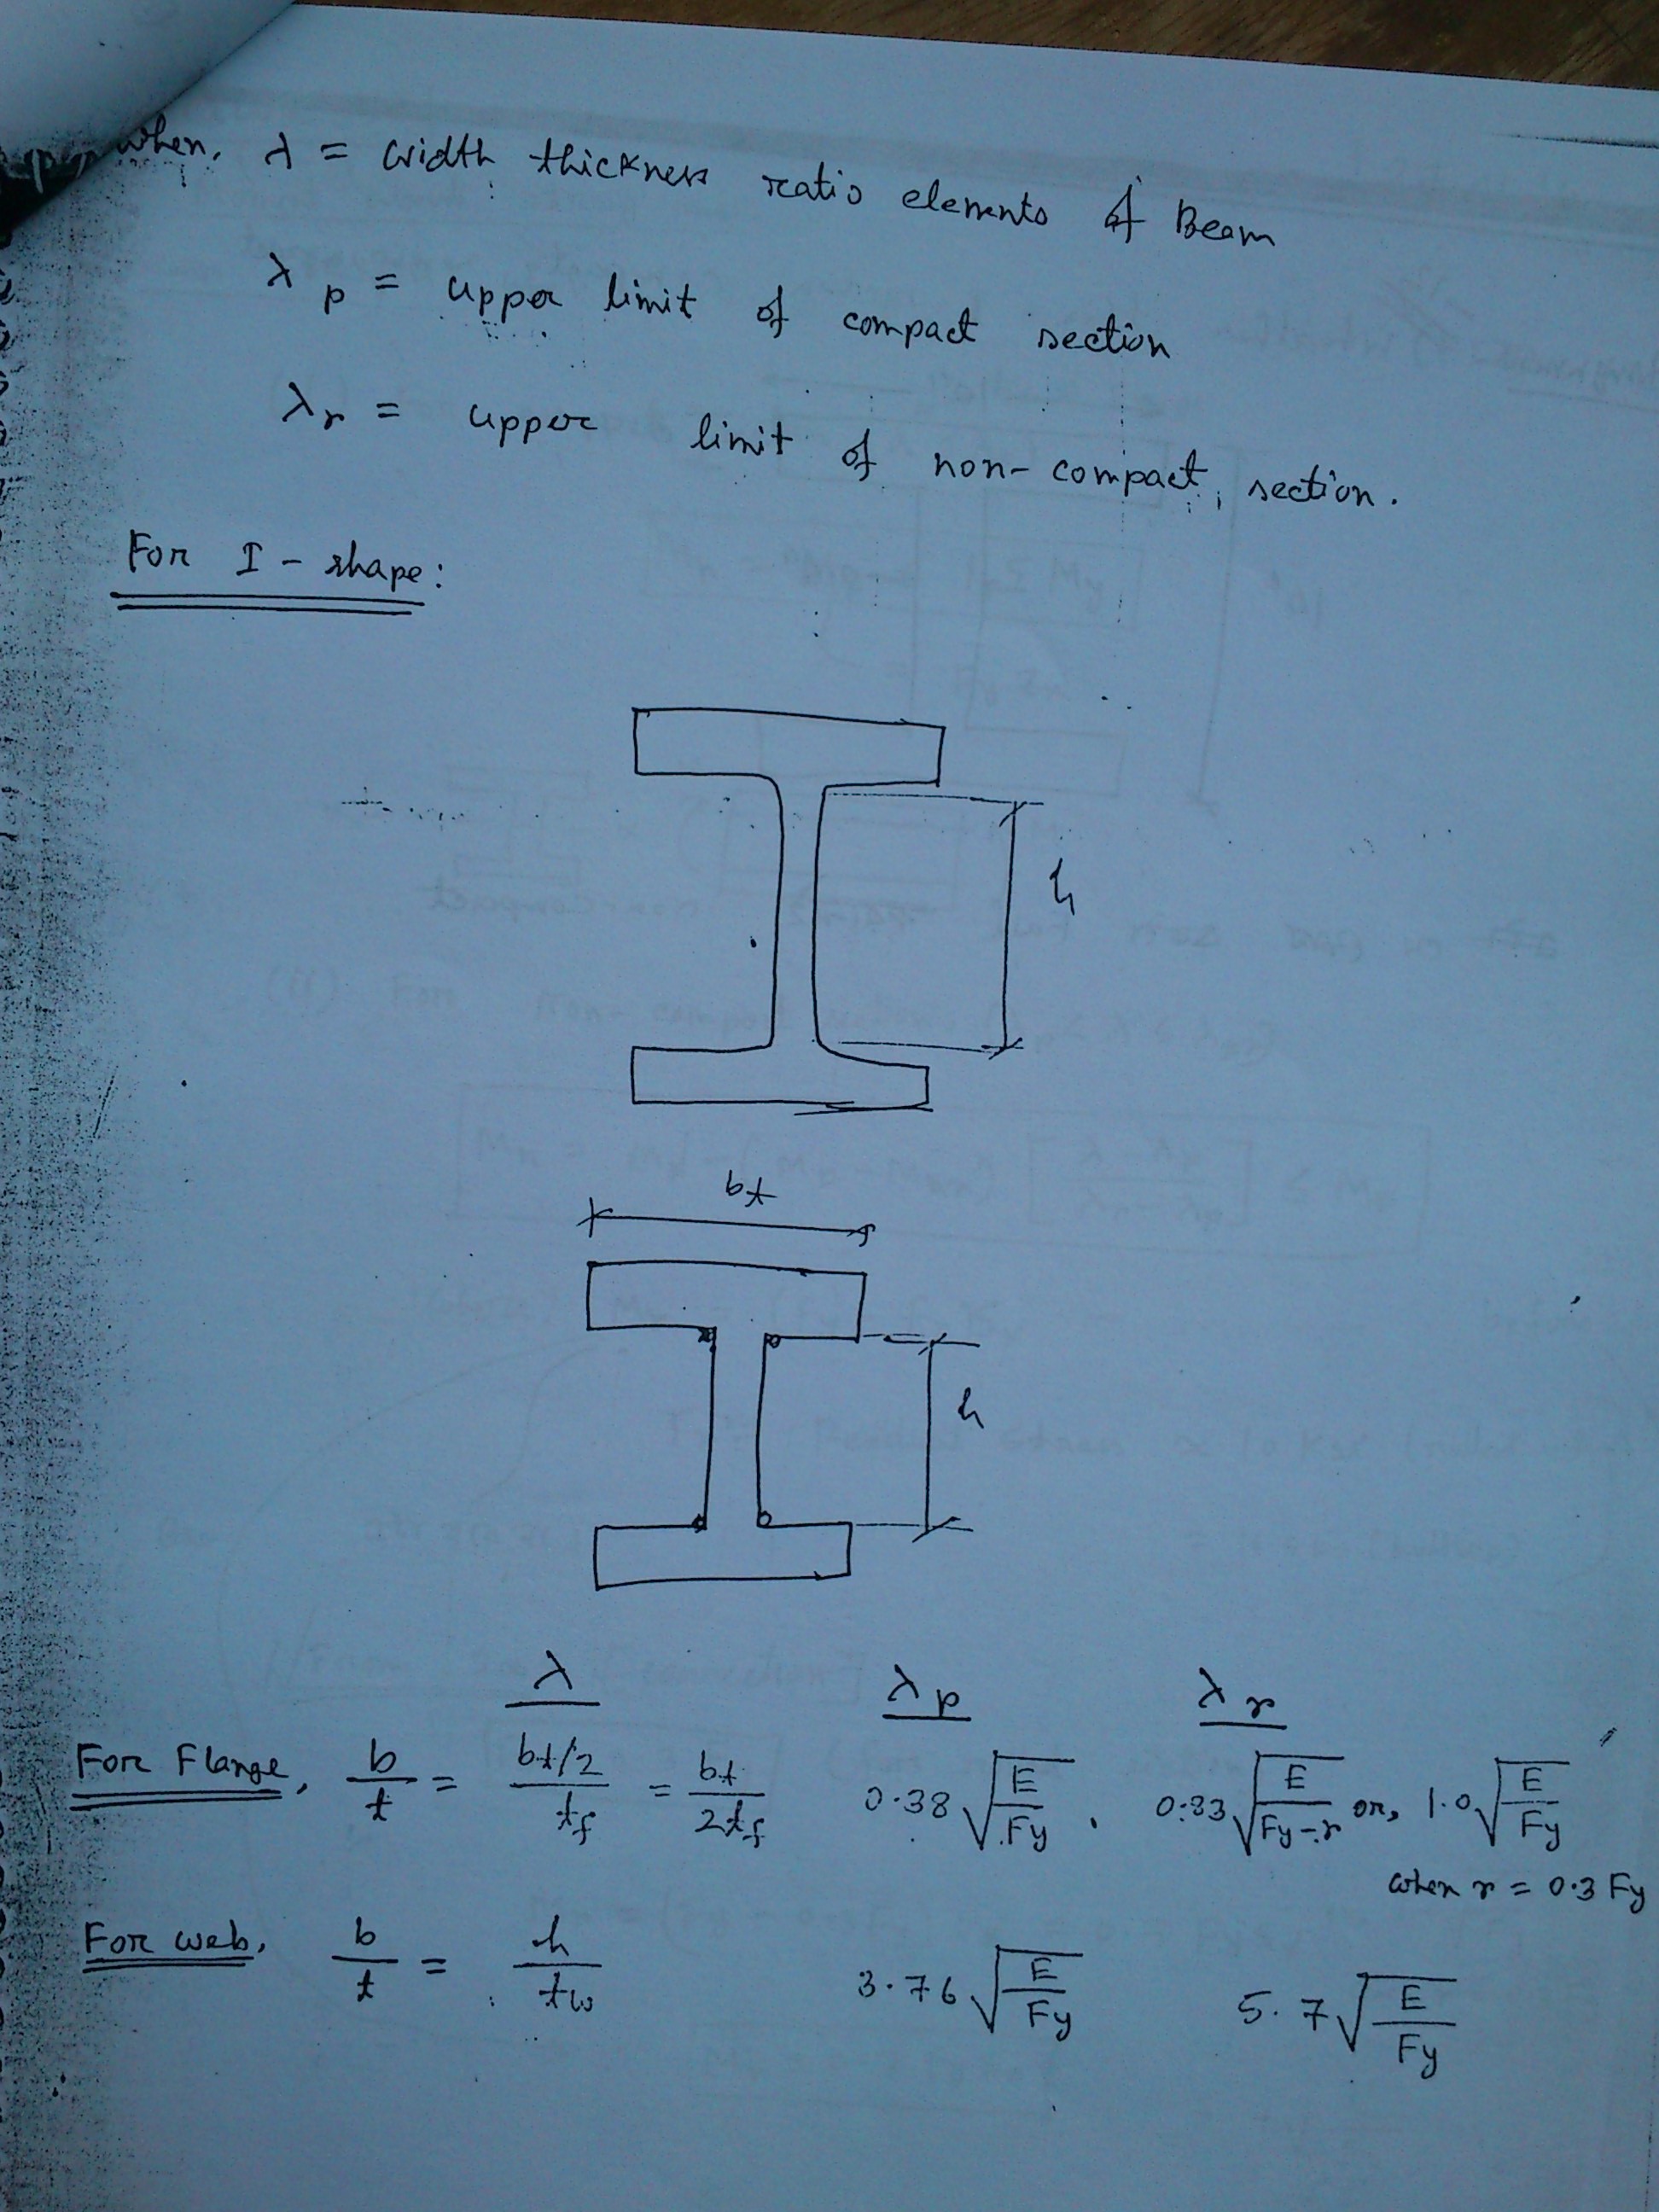 when, λ = width thickness ratio elements of Beam
λp = upper limit of compact section
λr = upper limit of non-compact section.
For I - shape:
h
bf
h
λ λp λr
For Flange, b/t = (bf/2)/tf = bf/2tf 0.38 √(E/Fy) , 0.83 √(E/Fy-r) or, 1.0 √(E/Fy)
when r = 0.3 Fy
For web, b/t = h/tw 3.76 √(E/Fy) 5.7 √(E/Fy)